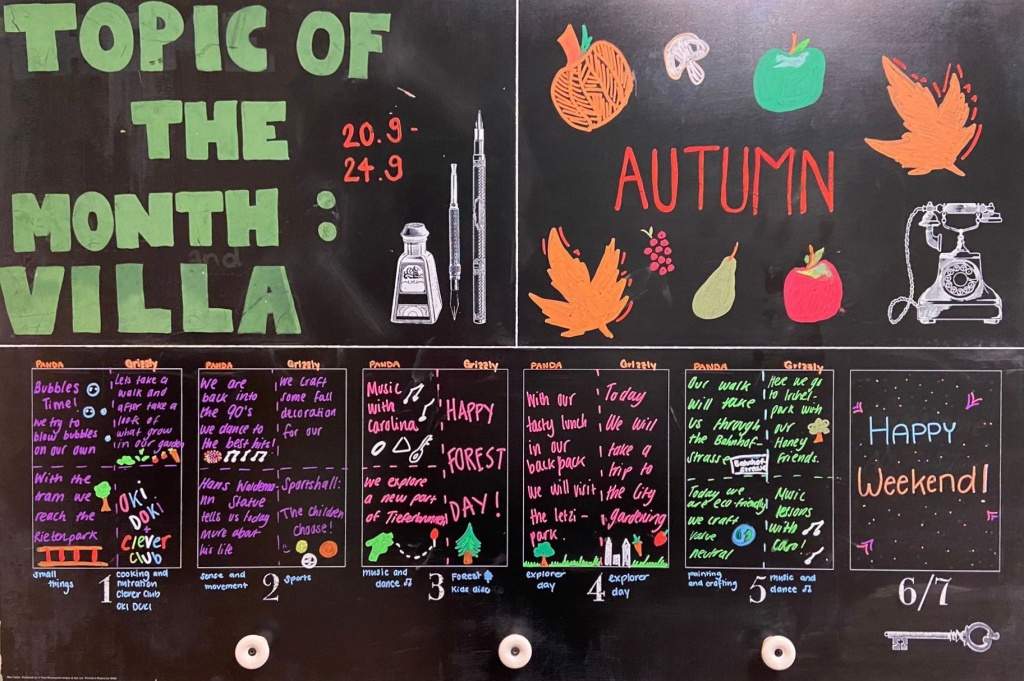 TOPIC OF
THE
MONTH :
and
VILLA
20.9-
24.9
AUTUMN
PANDA
Bubbles
Time!
we try to
blow bubbles
on our own
With the
tram we
reach the
Rietenpark
small
things
Grizzly
Lets take a
walk and
after take a
look of
what grow
in our garden
OKI
DOKI
+
Clever
CLUB
cooking and
nutration
Clever Club
OKI DOKI
1
PANDA
We are
back into
the 90's
we dance to
the best hits!
Hans Waldman-
nn Statue
tells us today
more about
his life
sense and
movement
Grizzly
We craft
some Fall
decoration
for our
Sportshall:
The Children
choose!
sports
2
PANDA
Music
with
Carolina
we explore
a new part
of Tiefenbrunnen
music and
dance
Grizzly
HAPPY
FOREST
DAY!
Forest
Kids disco
3
PANDA
With our
tasty lunch
in our
backpack
we will visit
the letzi-
park.
explorer
day
Grizzly
Today
We will
take a
trip to
the City
gardening
explorer
day
4
PANDA
Our walk
will take
us through
the Bahnhof-
Strasse
Bahnhof
strasse
Today we
are eco-friendly
we craft
value
neutral
painting
and crafting
Grizzly
Here we go
to Irchel-
park with
our
Honey
friends.
Music
lessons
with
Caro!
music and
dance
5
HAPPY
Weekend!
6/7